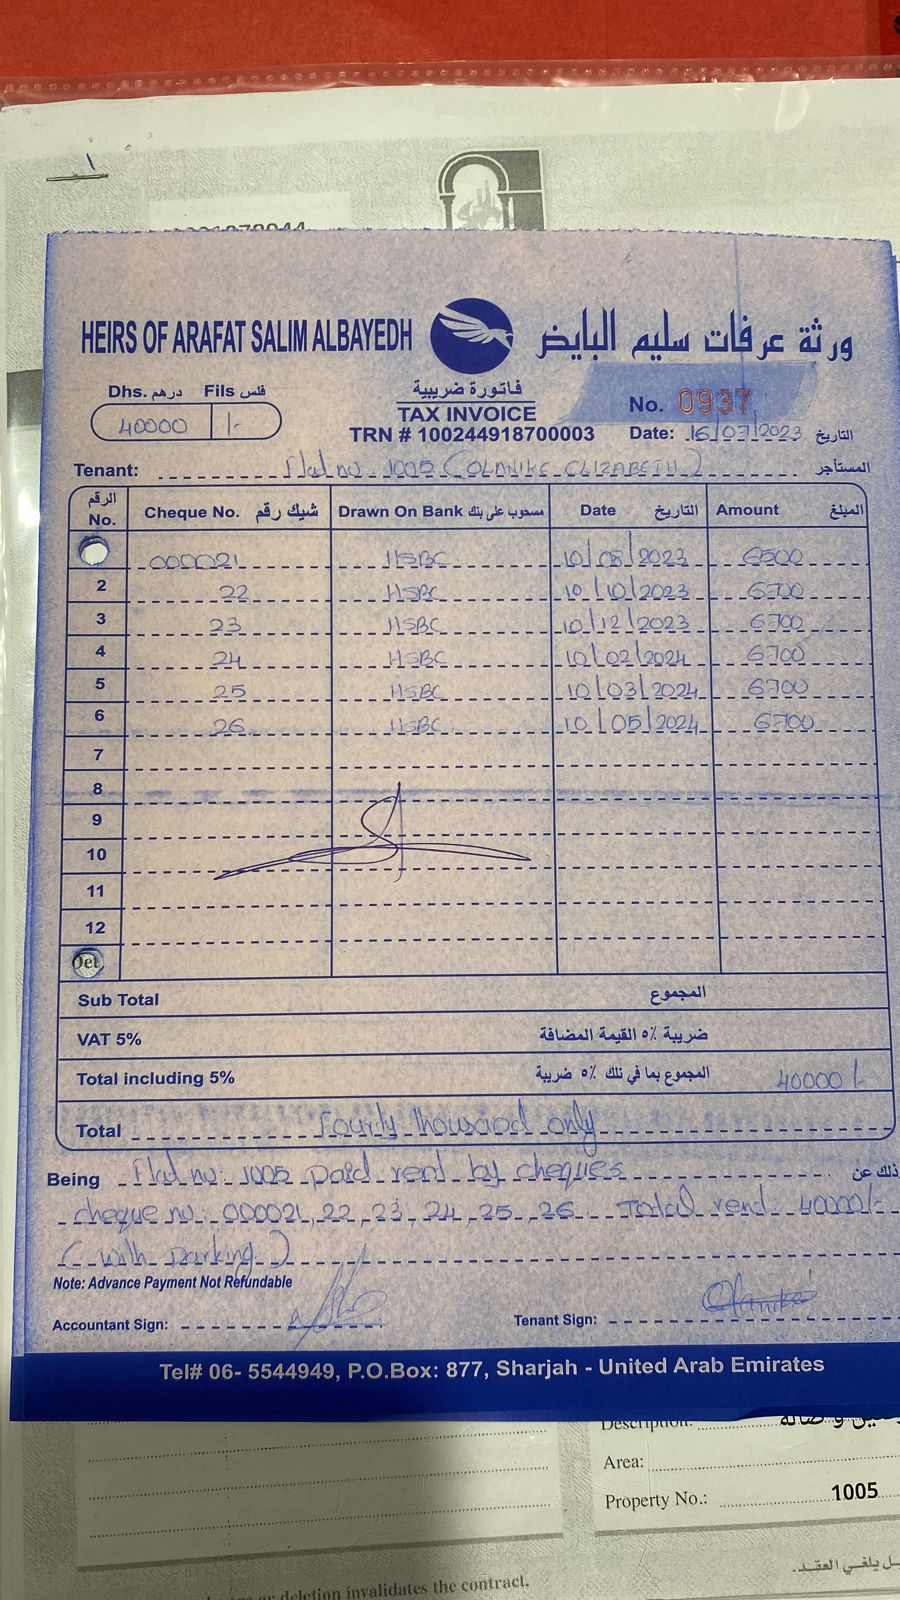 HEIRS OF ARAFAT SALIM ALBAYEDH
ورثة عرفات سليم البايض
Dhs. درهم Fils فلس
40000 /-
فاتورة ضريبية
TAX INVOICE
TRN # 100244918700003
No. 0937
Date: 16/07/2023 التاريخ
Tenant: Flat no 1005 (OLANIKE ELIZABETH) المستأجر
الرقم No. Cheque No. شيك رقم Drawn On Bank مسحوب على بنك Date التاريخ Amount المبلغ
000021 HSBC 10/08/2023 6500
2 22 HSBC 10/10/2023 6700
3 23 HSBC 10/12/2023 6700
4 24 HSBC 10/02/2024 6700
5 25 HSBC 10/03/2024 6700
6 26 HSBC 10/05/2024 6700
7
8
9
10
11
12
Det
Sub Total المجموع
VAT 5% ضريبة ٥% القيمة المضافة
Total including 5% المجموع بما في تلك ٥% ضريبة 40000/-
Total Fourty thousand only
Being Flat no: 1005 paid rent by cheques وذلك عن
cheque no: 000021, 22, 23, 24, 25, 26 Total rent 40000/-
( with parking )
Note: Advance Payment Not Refundable
Accountant Sign:
Tenant Sign: Olanike
Tel# 06- 5544949, P.O.Box: 877, Sharjah - United Arab Emirates
Description:
Area:
Property No.: 1005
or deletion invalidates the contract.
يلغي العقد.